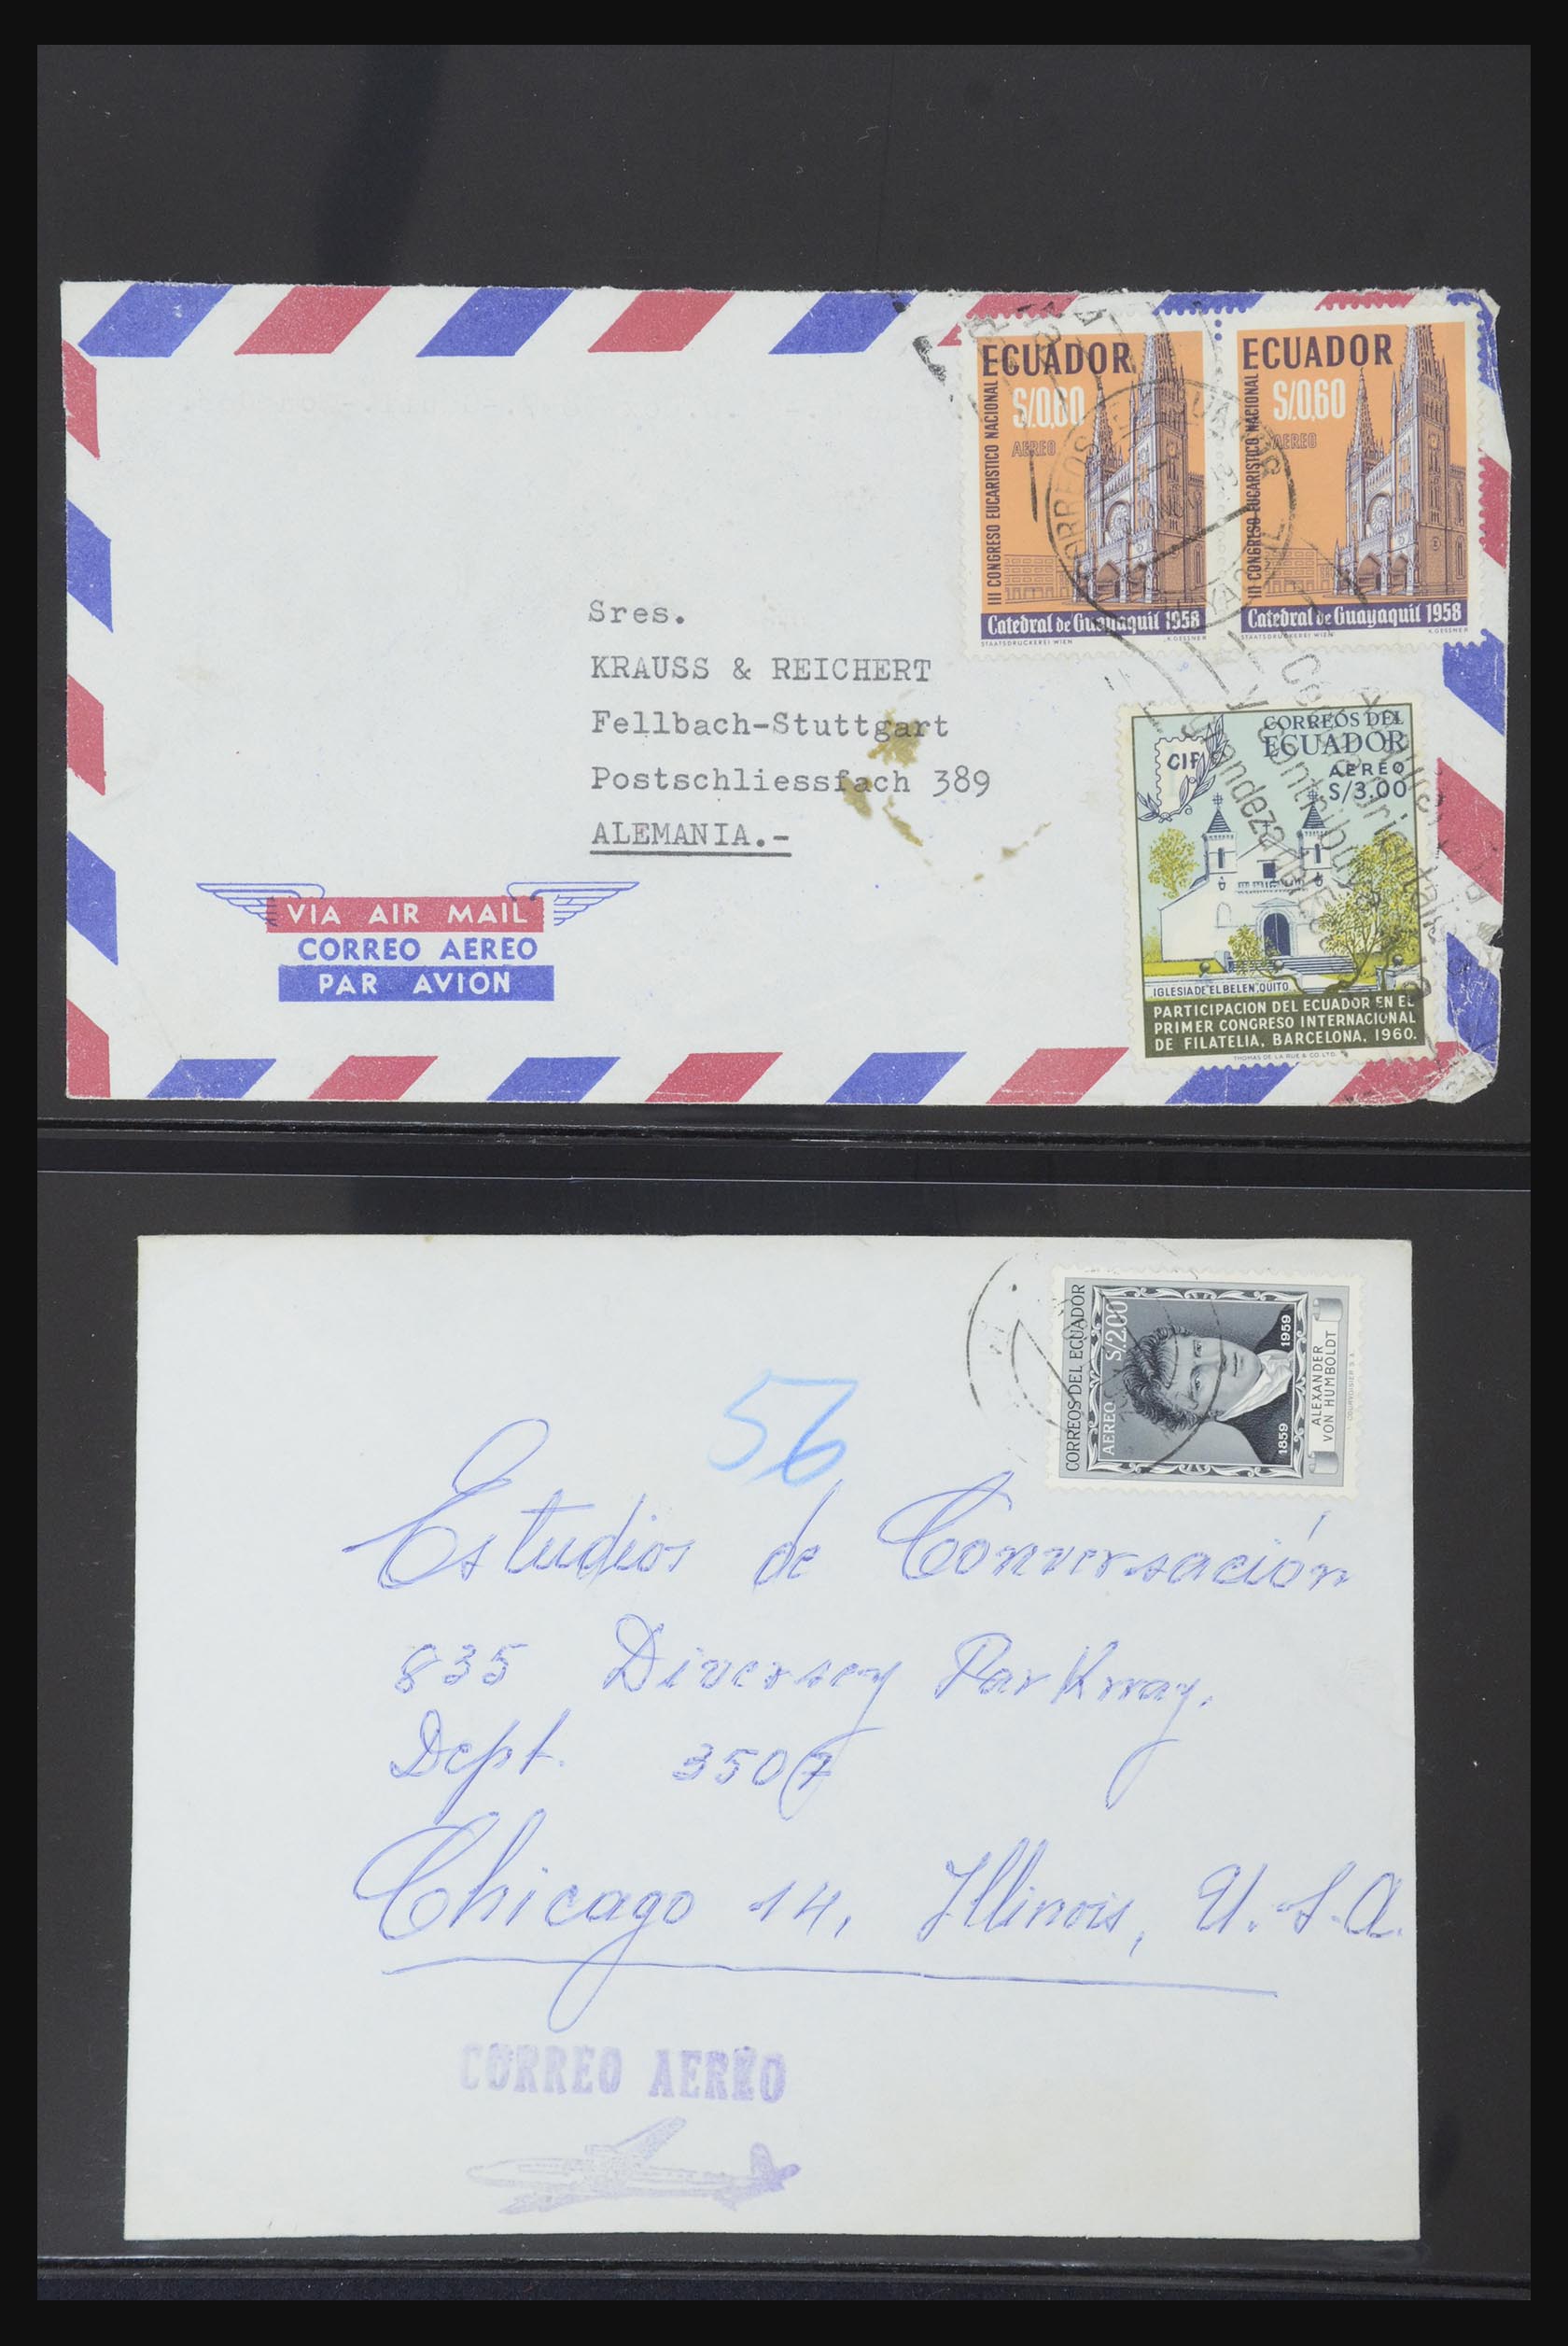 ECUADOR
S/.0,60
AEREO
III CONGRESO EUCARISTICO NACIONAL
Catedral de Guayaquil 1958
STAATSDRUCKEREI WIEN
K.GESSNER
ECUADOR
S/.0,60
AEREO
III CONGRESO EUCARISTICO NACIONAL
Catedral de Guayaquil 1958
STAATSDRUCKEREI WIEN
K.GESSNER
Sres.
KRAUSS & REICHERT
Fellbach-Stuttgart
Postschliessfach 389
ALEMANIA.-
CIF
CORREOS DEL
ECUADOR
AEREO
S/3.00
IGLESIA DE EL BELEN, QUITO
PARTICIPACION DEL ECUADOR EN EL
PRIMER CONGRESO INTERNACIONAL
DE FILATELIA, BARCELONA, 1960.
THOMAS DE LA RUE & CO. LTD.
VIA AIR MAIL
CORREO AEREO
PAR AVION
CORREOS DEL ECUADOR
AEREO S/2.00
1859 1959
ALEXANDER
VON HUMBOLDT
COURVOISIER S.A.
56
Estudios de Conversación
835 Diversey Parkway.
Dept. 3507
Chicago 14, Illinois, U.S.A.
CORREO AEREO